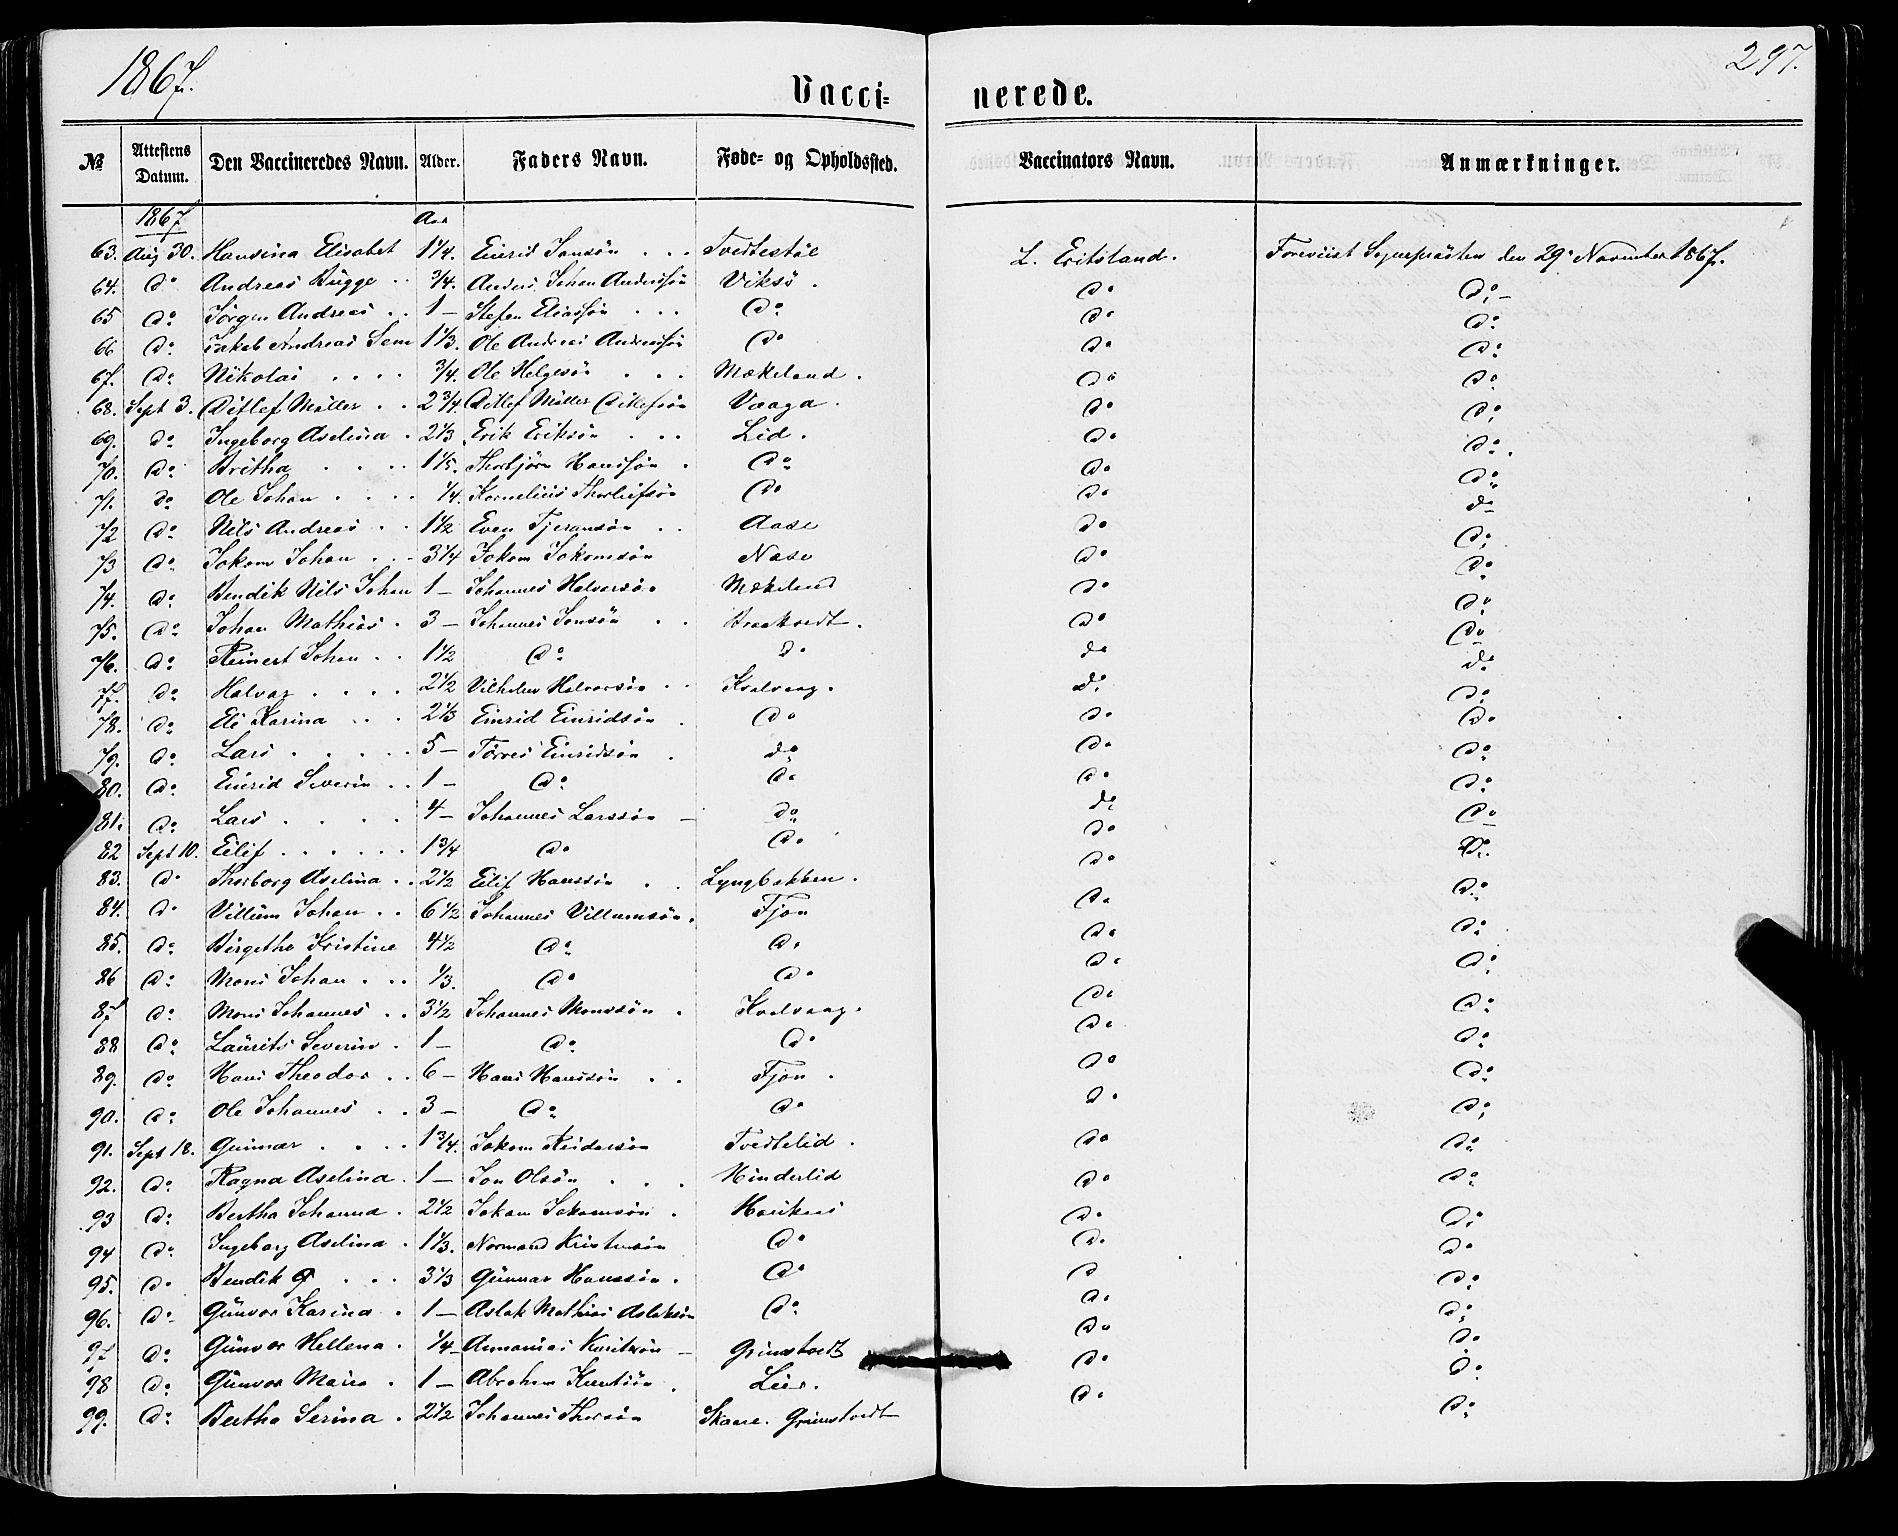 1867. 297.
Vacci= nerede.
№ Attestens Datum. Den Vaccineredes Navn. Alder. Faders Navn. Føde- og Opholdssted. Vaccinators Navn. Anmærkninger.
1867 Aar
63. Aug 30. Hansina Elisabet 1 1/4. Einrid Jonsön . . . Tvedtestøl L. Eritsland. Foreviist Sogneprästen den 29 November 1867.
64. do Andreas Bügge . . 3/4. Anders Johan Anderssön Viksö . do do
65 do Jörgen Andreas . . 1 – Stefen Eliassön . . . do do do
66 do Jakob Andreas Sem 1 1/3. Ole Andreas Anderssön do do do
67. do Nikolai . . . . 3/4. Ole Helgesön . . . Mækeland . do do
68. Sept 3. Ditlef Möller . . 2 3/4. Ditlef Möller Ditlefsön Vaaga . do do
69. do Ingeborg Aselina . 2 1/3 Erik Eriksön . . . Lid . do do
70. do Britha . . . . 1 1/5. Thorbjörn Hanssön . do do do
71. do Ole Johan . . . . 1/4. Kornelius Thorleifsön do do do
72 do Nils Andreas . . 1 1/2 Even Tjeransön . . Aase do do
73 do Jokom Johan . . . 3 1/4 Jokom Jokomsön Nase do do
74. do Bendik Nils Johan 1 – Johannes Halvorsön Mækeland do do
75. do Johan Mathias . 3 – Johannes Jonsön . . Braakvedt . do do
76. do Reinert Johan . . 1 1/2 do do do do
77. do Halvor . . . . 2 1/2 Vilhelm Halvorsön . . Kvalvaag . do do
78. do Eli Karina . . . 2 1/3 Einrid Einridsön . do do do
79. do Lars . . . . . 5 – Törres Einridsön . do do do
80. do Einrid Severin . . 1 – do do do do
81. do Lars . . . . 4 – Johannes Larssön – do do do
82 Sept 10. Eilif . . . . . . 1 3/4 do do do do
83. do Thorborg Aselina . . 2 1/2 Eilif Hanssön . . Lyngbakken . do do
84. do Villum Johan . . 6 1/2 Johannes Villumsön . Fjon do do
85. do Birgethe Kristine 4 1/2 do do do do
86 do Mons Johan . . . 1/3. do do do do
87 do Mons Johannes . . 3 1/2 Johannes Monssön . Kvalvaag . do do
88 do Laürits Severin . 1 – do do do do
89. do Hans Theodor . . 6 – Hans Hanssön . . Fjon . do do
90. do Ole Johannes . . 3 – do do do do
91. Sept 18. Gunnar . . . . 1 3/4. Jokom Reidarsön Tvedtelid . do do
92. do Ragna Aselina . 1 – Jon Olsön . . . Hinderlid do do
93 do Bertha Johanna . 2 1/2 Jokom Jokomsön . do do
94 do Ingeborg Aselina . 1 1/3. Normand Kristensön do do do
95. do Bendik G . . . 3 1/3 Günnar Hanssön . do do do
96. do Günvor Karina . 1 – Aslak Mathias Aslaksön do do do
97 do Günvor Hellena . 1/4 – Annanias – Grimstvedt do do
98 do Günvor Maria . 1 – Abraham . Lier . do do
99. do Bertha Serina . 2 1/2 Johannes Thorsön Skaare. Grimstvedt do do